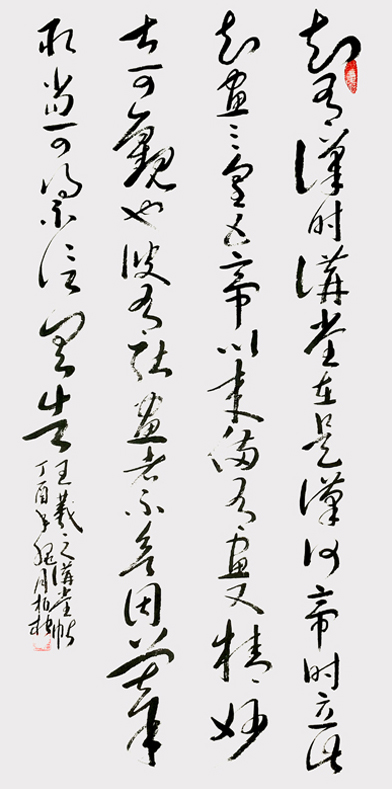 知有漢时講堂在是漢何帝时立此
知畫三皇五帝以來備有畫又精妙
甚可觀也彼有能畫者不欲因摹
取當可得不信具告
王羲之講堂帖
丁酉年月柏